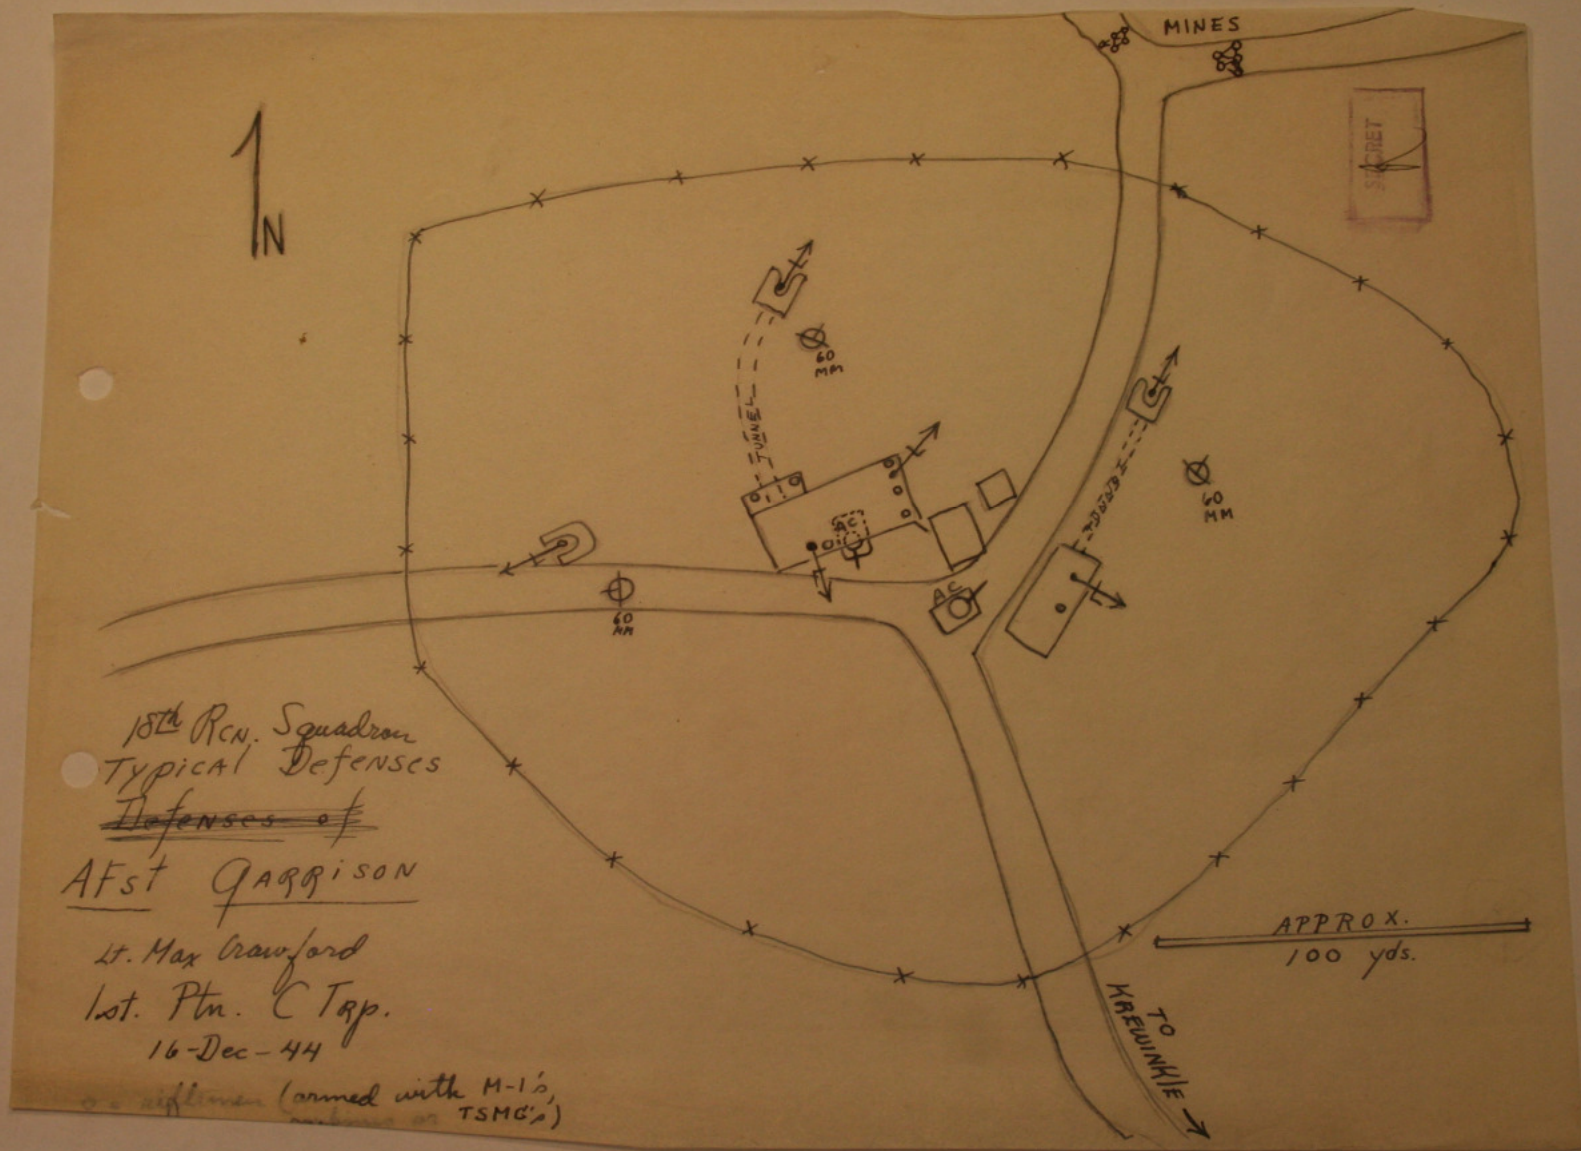 MINES
SECRET
N
60
MM
TUNNEL
60
MM
AC
AC
60
MM
18th RCN. Squadron
Typical Defenses
Defenses of
AFst GARRISON
Lt. Max Crawford
1st. Ptn. C Trp.
16-Dec-44
o = riflemen (armed with M-1's,
carbines or TSMG's)
APPROX.
100 yds.
TO
KREWINKLE